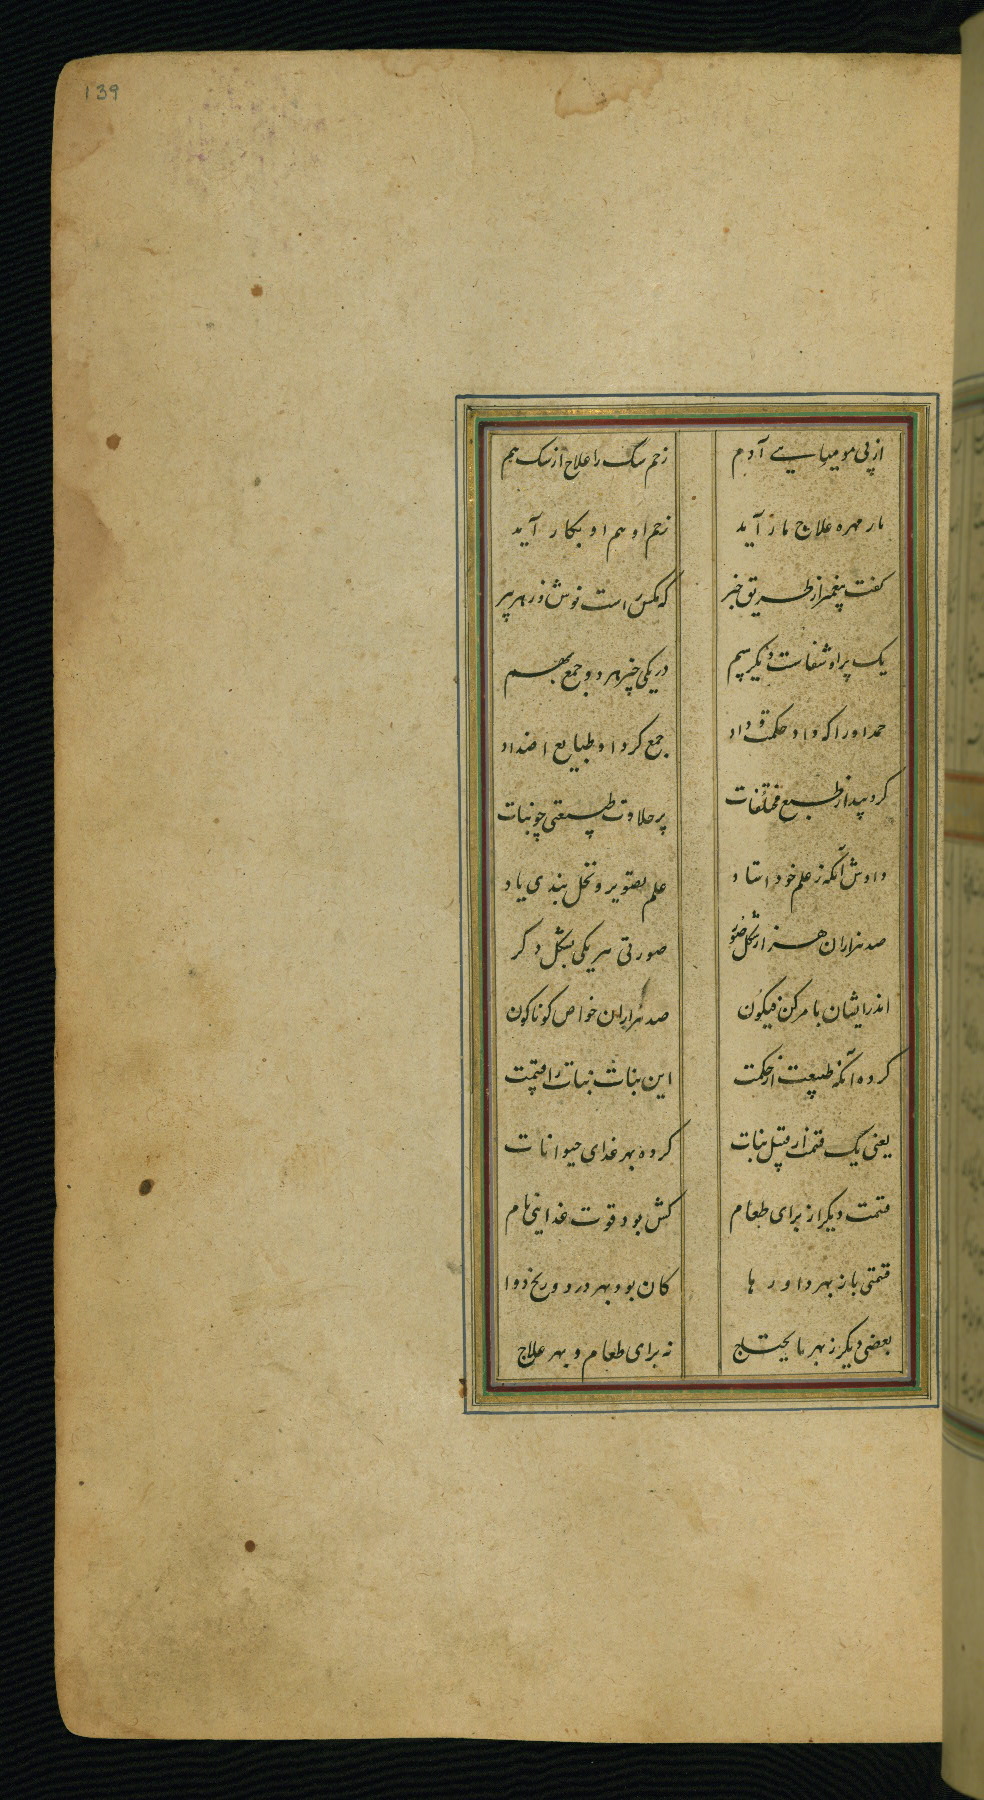 139
از پی مومیایی آدم زخم سگ را علاج از سگ هم
مار مهره علاج مار آید زخم او هم او بکار آید
گفت پیغمبر از طریق خبر که مگس راست نوش و زهر ببر
یک پر او شفاست دیگر سم در یکی خبر هر دو جمع بهم
حمد او را که داد حکمت و داد جمع کرد او طبایع اضداد
کرد پیدا ز طبع مختلفات پر حلاوت طبیعتی چو نبات
دادش آنکه ز علم خود استاد علم تصویر و نخل بندی یاد
صد هزاران هزار شکل و صور صورتی هر یکی بشکل دگر
اندر ایشان بامر کن فیکون صد هزاران خواص گوناگون
کرده آنگه طبیعت از حکمت این بنات نبات را قسمت
یعنی یک قسمت از قبیل نبات کرده بهر غذای حیوانات
قسمت دیگر از برای طعام کش بود قوت غذایی نام
قسمتی باز بهر داورها کان بود بهر درد و رنج دوا
بعضی دیگر ز بهر مایحتاج نه برای طعام و بهر علاج